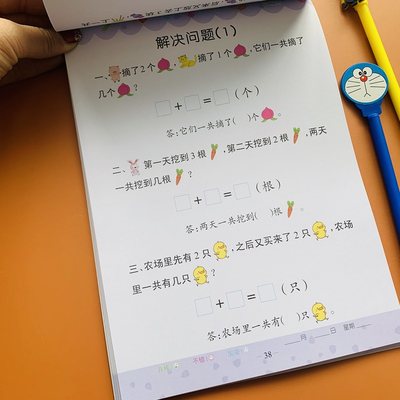 解决问题(1)
一、摘了2个,摘了1个,它们一共摘了
几个?
□+□=□(个)
答:它们一共摘了( )个。
二、第一天挖到3根,第二天挖到2根,两天
一共挖到几根?
□+□=□(根)
答:两天一共挖到( )根。
三、农场里先有2只,之后又买来了2只,农场
里一共有几只?
□+□=□(只)
答:农场里一共有( )只。
38
月 日 星期